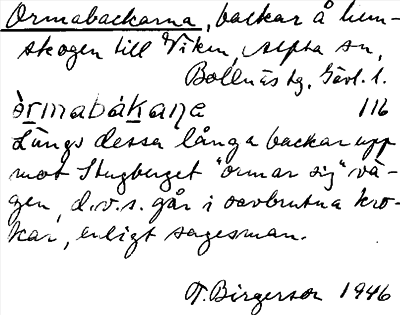 Ormabackarna, backar å hem-
skogen till Viken, Alfta sn,
Bollnäs tg, Gävl. l.
òrmabákaṇa 116
Längs dessa långa backar upp
mot Stugberget "ormar sig" vä-
gen, d.v.s. går i oavbrutna kro-
kar, enligt sagesman.
T. Birgerson 1946